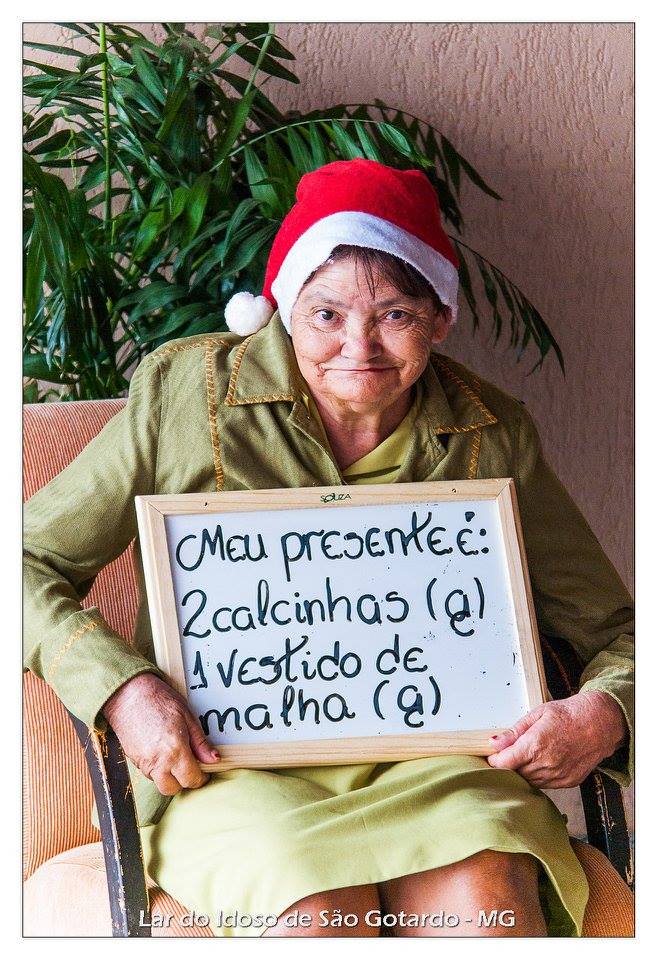 SOUZA
Meu presente é:
2 calcinhas (g)
1 vestido de
malha (g)
Lar do Idoso de São Gotardo - MG